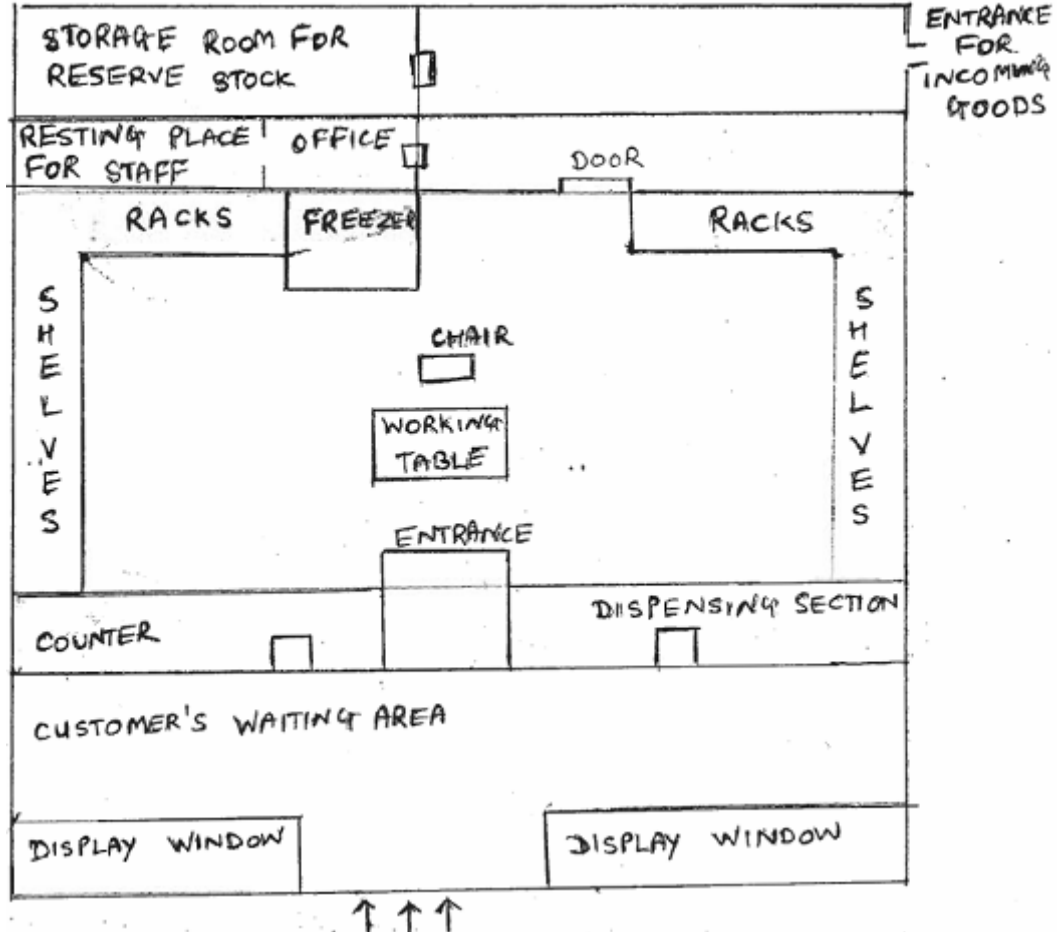 STORAGE ROOM FOR
RESERVE STOCK
ENTRANCE
FOR
INCOMING
GOODS
RESTING PLACE
FOR STAFF
OFFICE
DOOR
RACKS
FREEZER
RACKS
SHELVES
CHAIR
WORKING
TABLE
SHELVES
ENTRANCE
COUNTER
DISPENSING SECTION
CUSTOMER'S WAITING AREA
DISPLAY WINDOW
DISPLAY WINDOW